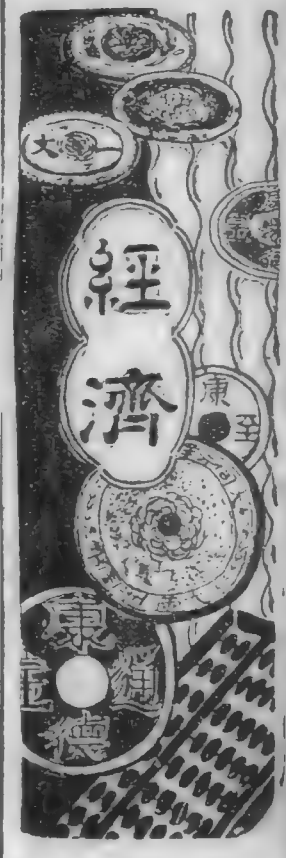 大
經
濟
康
至
康
通
德